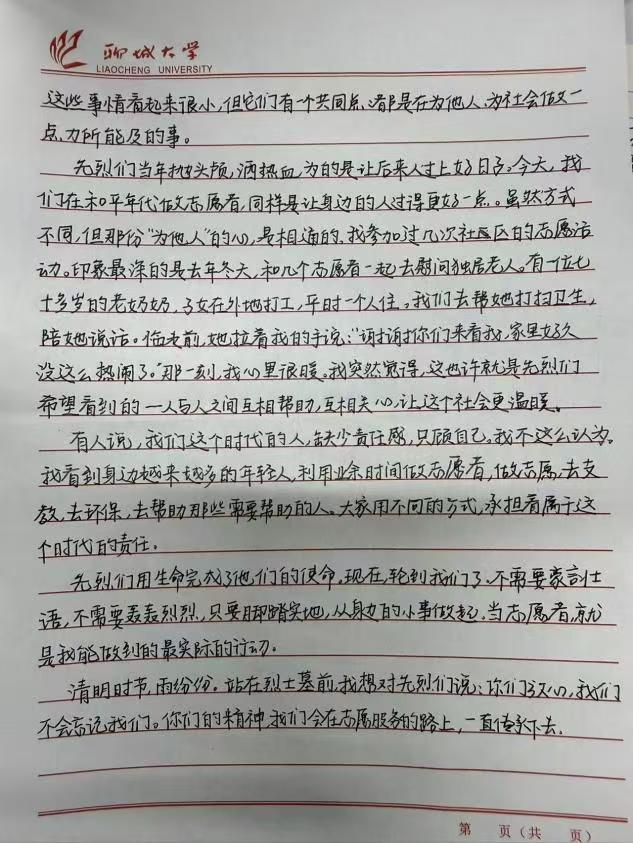 聊城大学
LIAOCHENG UNIVERSITY
这些事情看起来很小,但它们有一个共同点:都是在为他人、为社会做一
点力所能及的事。
先烈们当年抛头颅,洒热血,为的是让后来人过上好日子。今天,我
们在和平年代做志愿者,同样是让身边的人过得更好一点。虽然方式
不同,但那份“为他人”的心,是相通的。我参加过几次社区的志愿活
动。印象最深的是去年冬天,和几个志愿者一起去慰问独居老人。有一位七
十多岁的老奶奶,子女在外地打工,平时一个人住。我们去帮她打扫卫生,
陪她说话。临走前,她拉着我的手说:“谢谢你们来看我,家里好久
没这么热闹了。”那一刻,我心里很暖。我突然觉得,这也许就是先烈们
希望看到的—人与人之间互相帮助,互相关心,让这个社会更温暖。
有人说,我们这个时代的人,缺少责任感,只顾自己。我不这么认为。
我看到身边越来越多的年轻人,利用业余时间做志愿者,做志愿,去支
教,去环保,去帮助那些需要帮助的人。大家用不同的方式,承担着属于这
个时代的责任。
先烈们用生命完成了他们的使命。现在,轮到我们了。不需要豪言壮
语,不需要轰轰烈烈,只要脚踏实地,从身边的小事做起。当志愿者,就
是我能做到的最实际的行动。
清明时节,雨纷纷。站在烈士墓前,我想对先烈们说:你们放心,我们
不会忘记我们。你们的精神,我们会在志愿服务的路上,一直传承下去。
第 页(共 页)